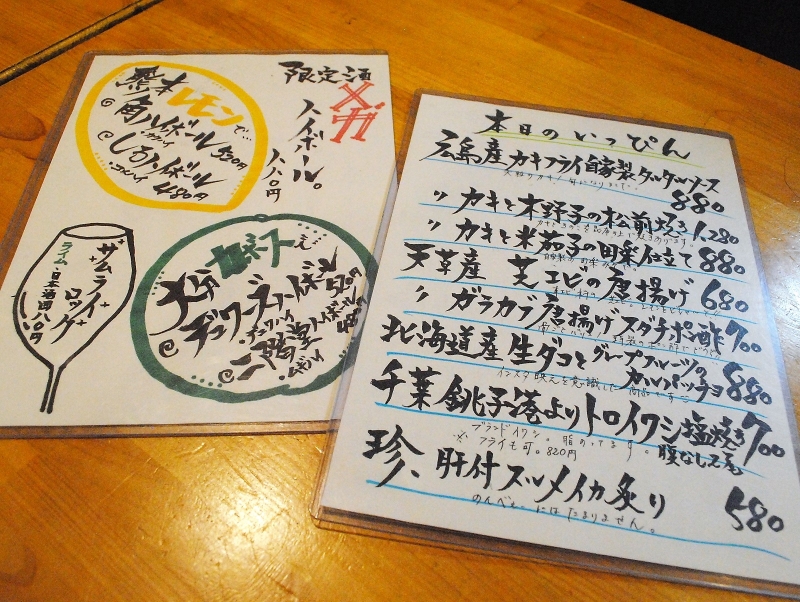 限定酒
メガ
ハイボール。
八八〇円
熊本レモンで…
角ハイボール 550円
しろハイボール 480円
サムライ
ロック
ライム・日本酒
大分
デュワーズハイボール
二階堂
本日のいっぴん
広島産カキフライ自家製タルタルソース
880
〃 カキと木野子の松前焼き 1,280
〃 カキと米茄子の田楽仕立て 880
天草産 芝エビの唐揚げ 680
〃 ガラカブ唐揚げスダチポン酢 700
北海道産生ダコとグレープフルーツの
カルパッチョ 880
インスタ映えを意識した
千葉銚子港よりトロイワシ塩焼き 700
ブランドイワシ。脂のってます。
※フライも可。820円
珍、肝付スルメイカ炙り 580
のんべぇにはたまりません。